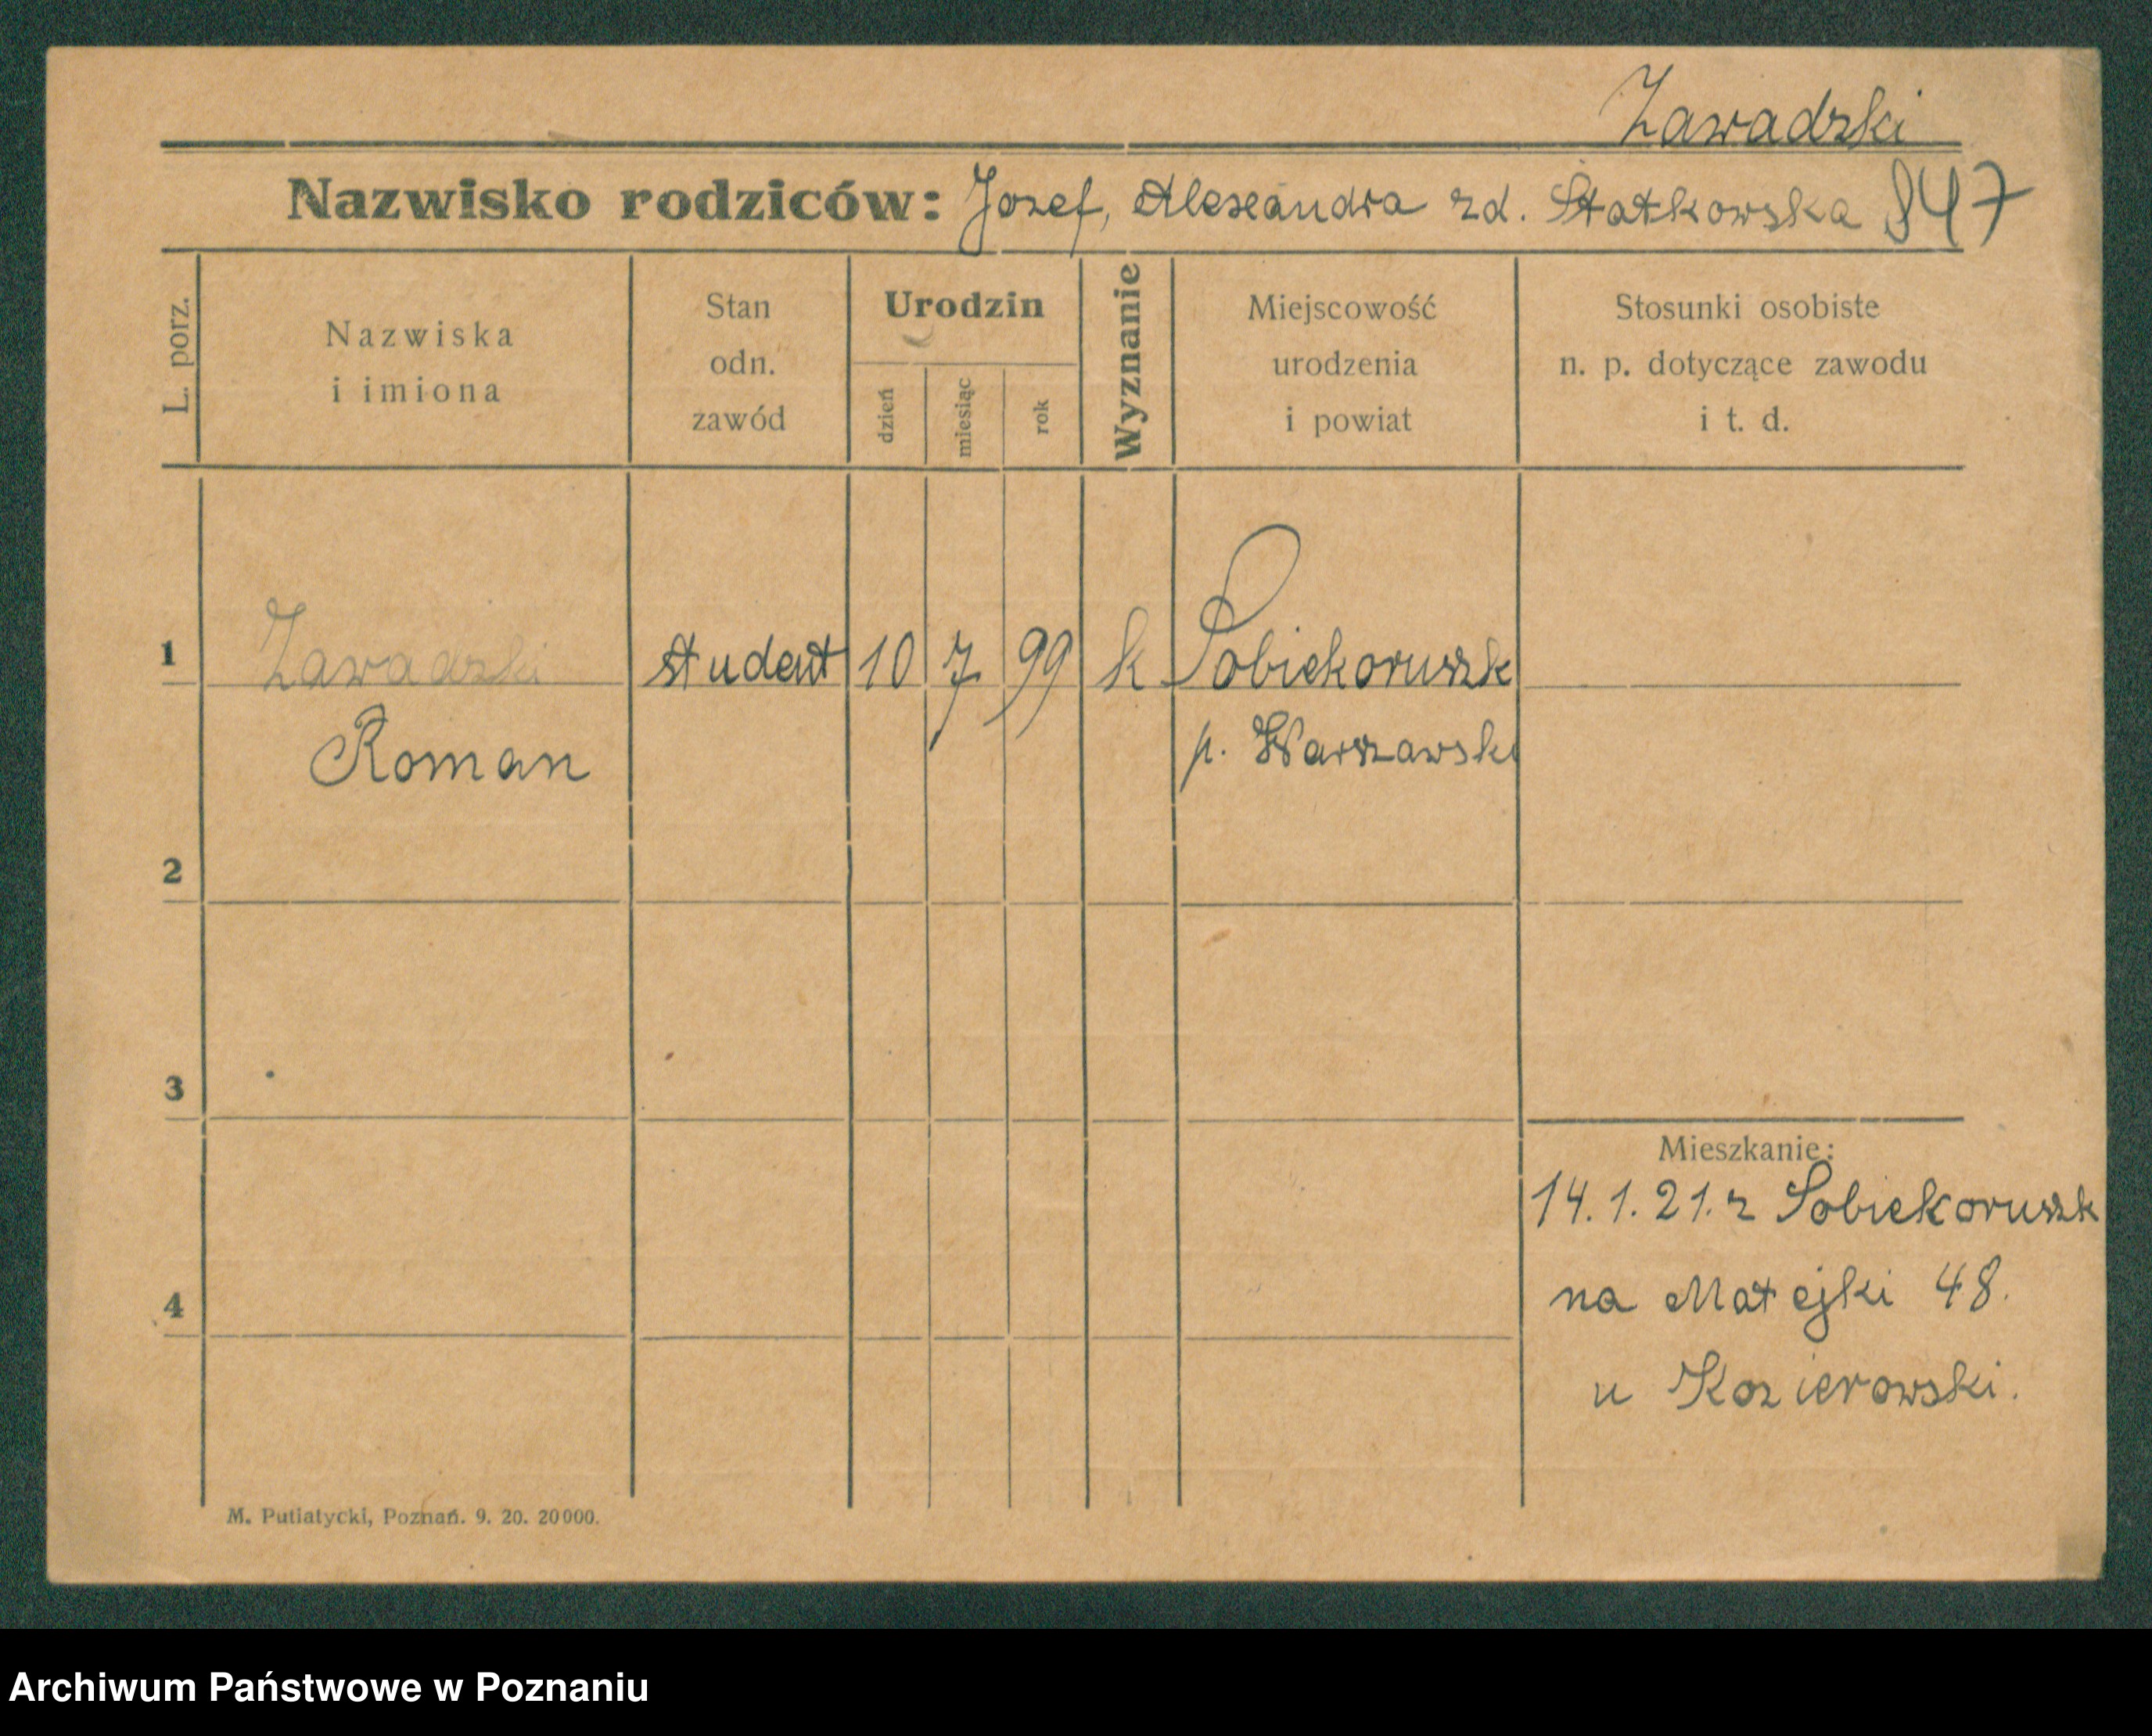 Zawadzki
Nazwisko rodziców: Jozef, Alexandra zd. Statkowska 847
L. porz.
Nazwiska
i imiona
Stan
odn.
zawód
Urodzin
dzień
miesiąc
rok
Wyznanie
Miejscowość
urodzenia
i powiat
Stosunki osobiste
n. p. dotyczące zawodu
i t. d.
1 Zawadzki student 10 7 99 k Sobiekoruszk
Roman p. Warszawski
2
3
Mieszkanie:
14.1.21. z Sobiekoruszk
na Matejki 48.
4
u Kozierowski.
M. Putiatycki, Poznań. 9. 20. 20000.
Archiwum Państwowe w Poznaniu